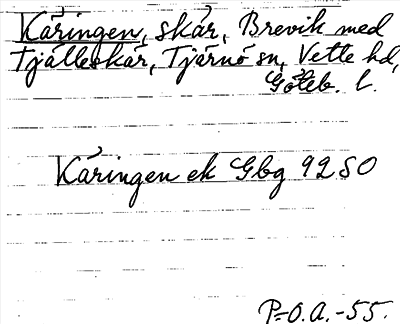 Käringen, skär, Brevik med
Tjälleskär, Tjärnö sn, Vette hd,
Göteb. l.
Käringen ek Gbg 92 SO
P-O.A.-55.